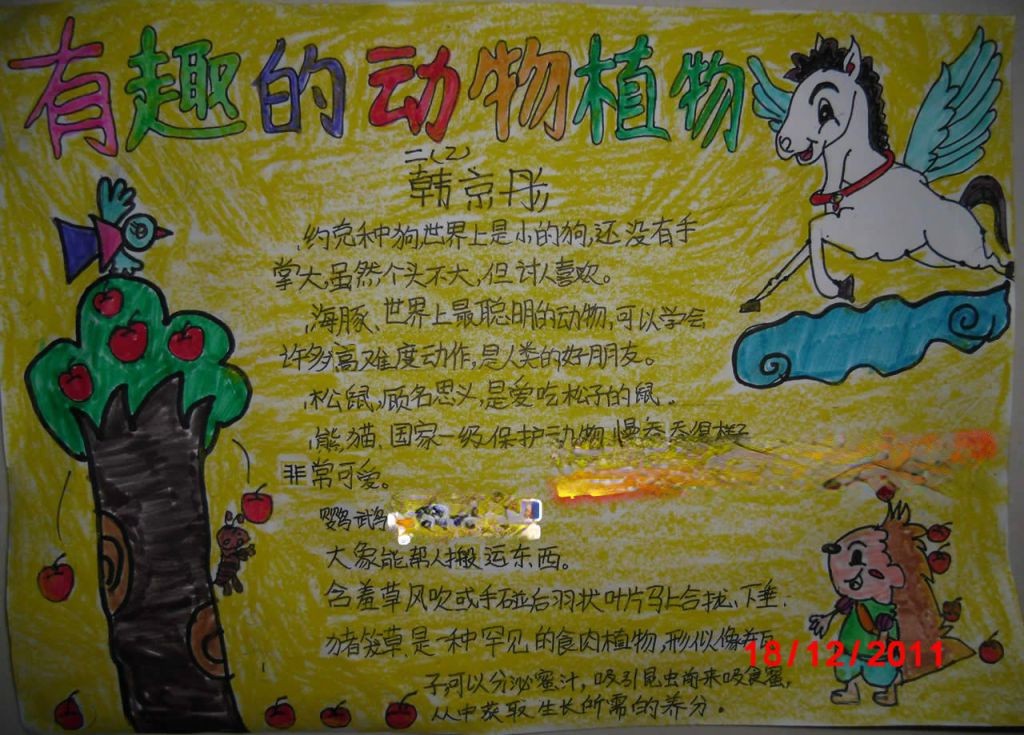 有趣的动物植物
二(乙)
韩京彤
约克种狗,世界上是小的狗,还没有手
掌大,虽然个头不大,但讨人喜欢。
海豚、世界上最聪明的动物,可以学会
许多高难度动作,是人类的好朋友。
松鼠,顾名思义,是爱吃松子的鼠。
熊猫、国家一级保护动物,慢吞吞得样子
非常可爱。
鹦鹉
大象能帮人搬运东西。
含羞草风吹或手碰后羽状叶片马上合拢、下垂.
猪笼草.是一种罕见的食肉植物,形似像
18/12/2011
子可以分泌蜜汁,吸引昆虫前来吸食蜜,
从中获取生长所需的养分。